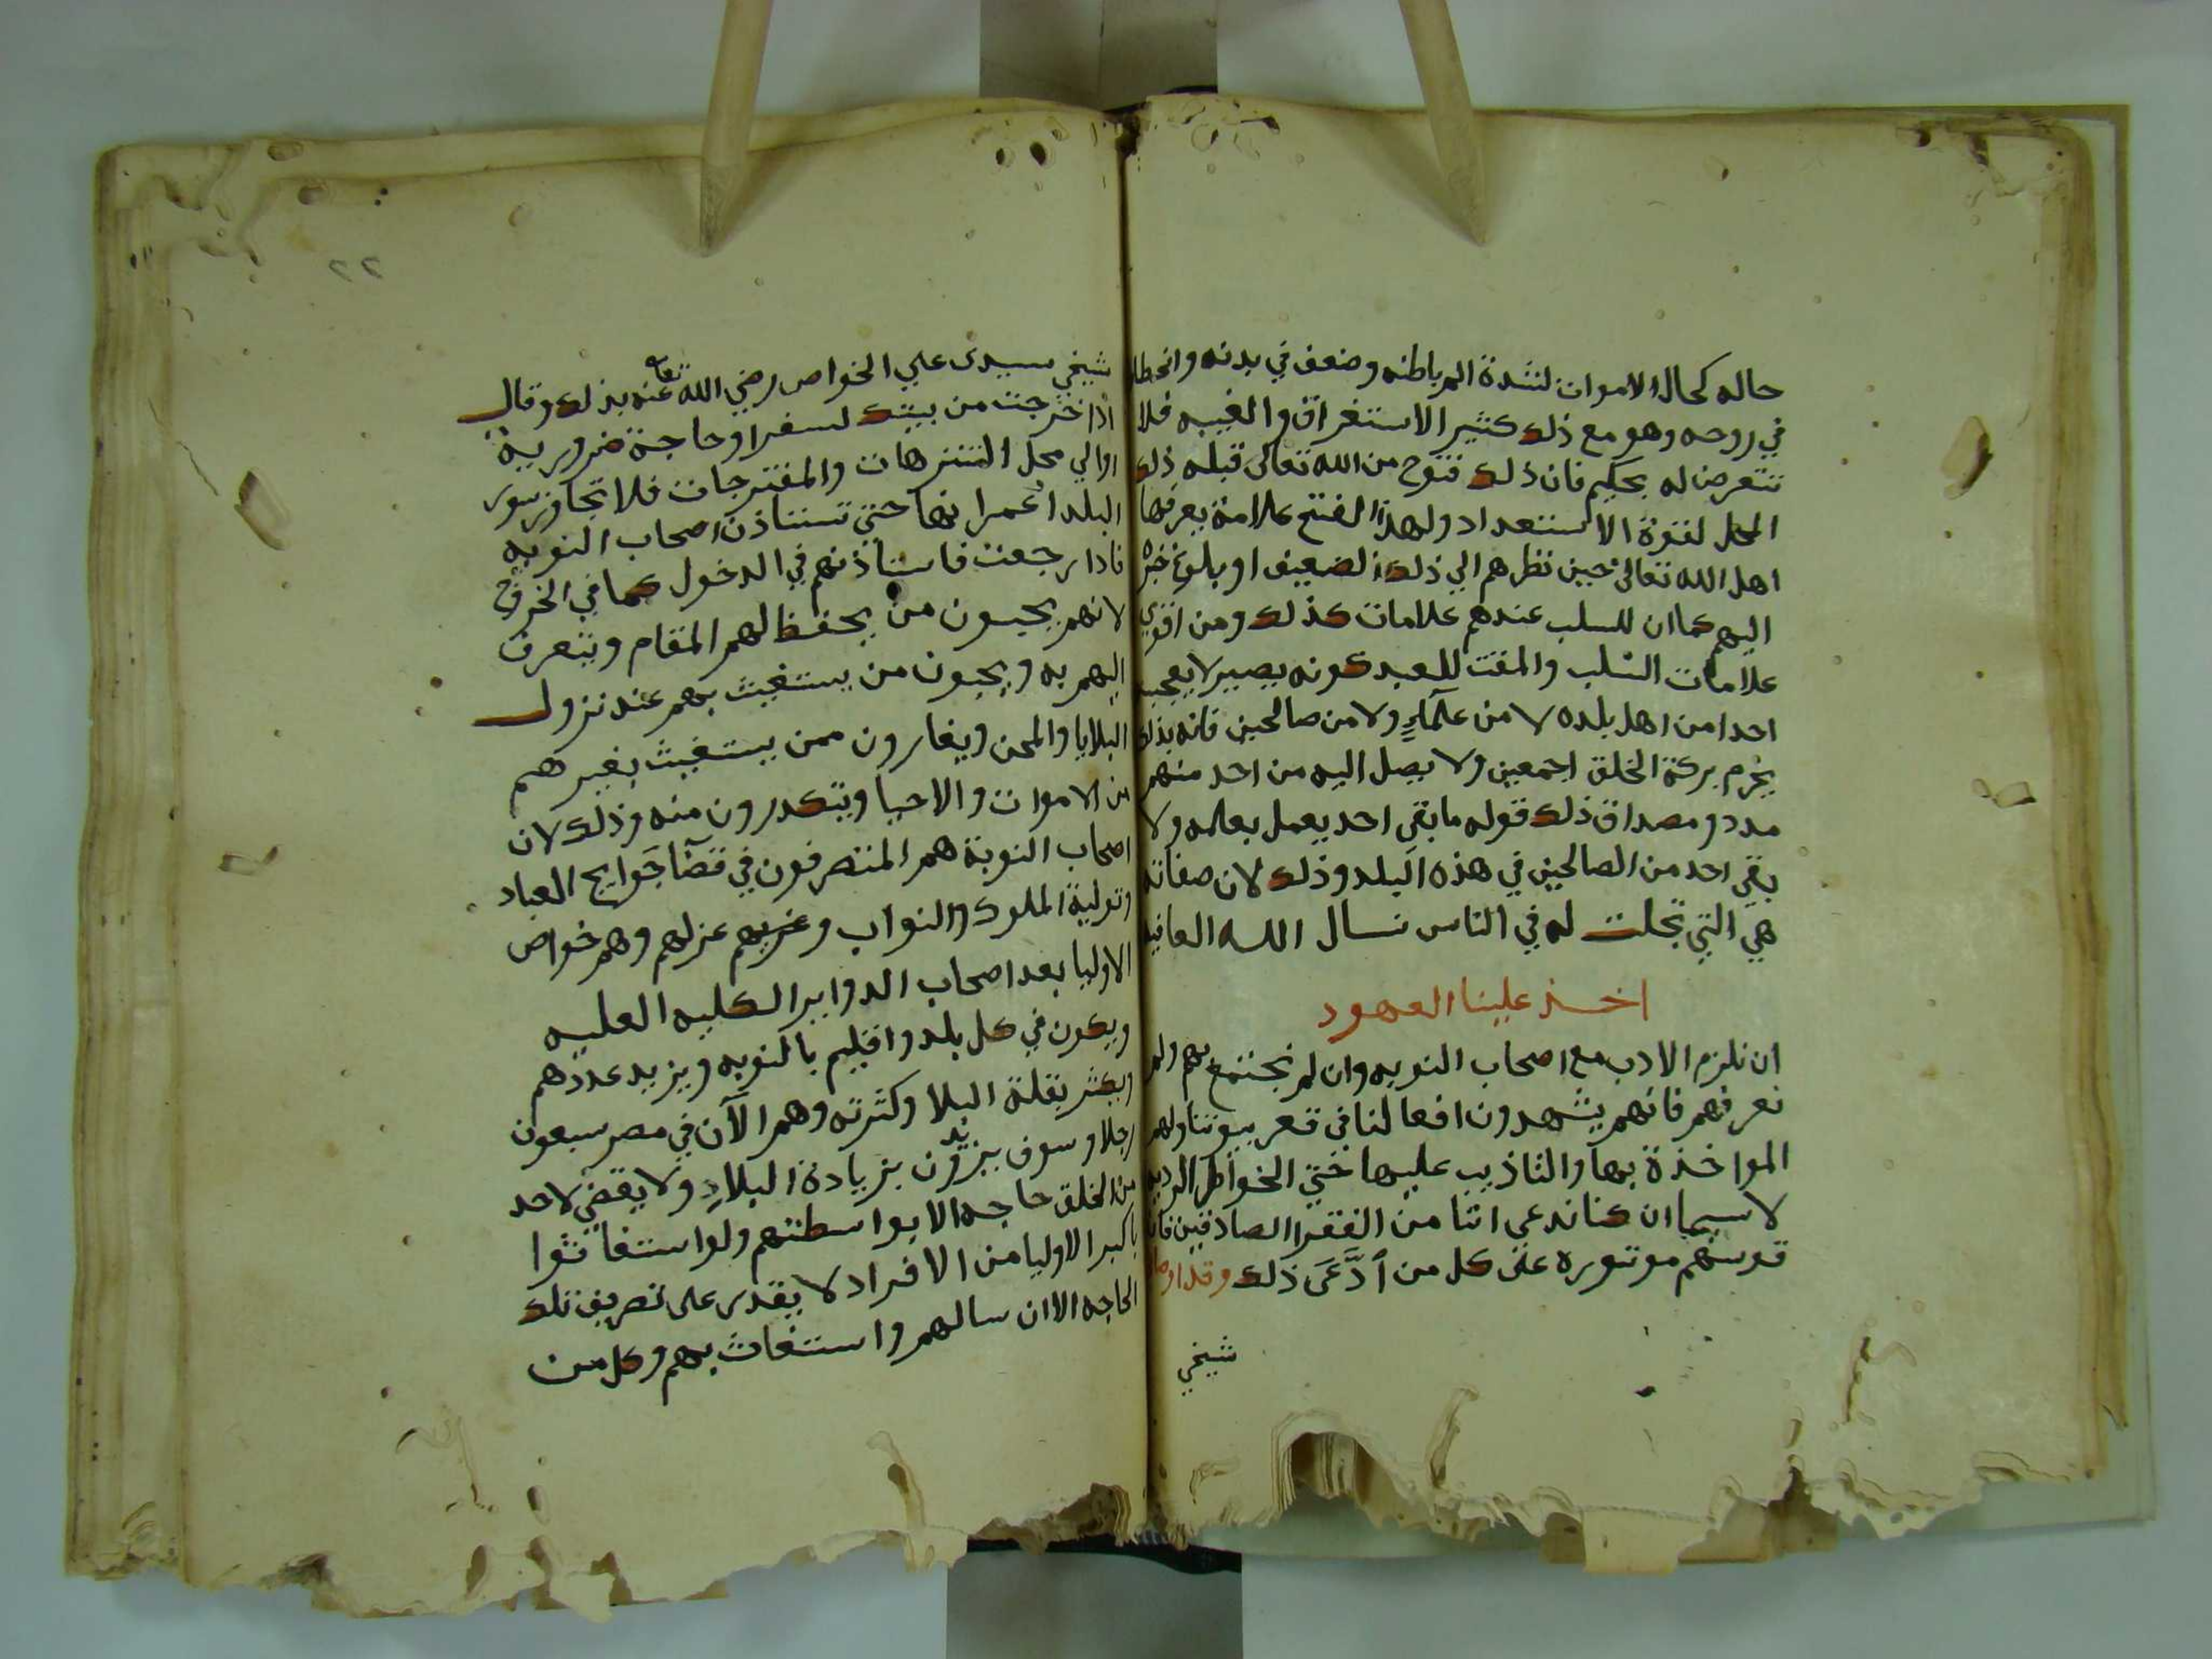 حاله كحال الاموات لشدة المر باطنه وضعف في بدنه وانحطا
في روحه وهو مع ذلك كثير الاستغراق والغيبه فلا
تتعرض له بحكم فان ذلك فتوح من الله تعالى قبله ذلك
المحل لقوة الاستعداد ولهذا الفتح علامة يعرفها
اهل الله تعالى حين نظرهم الي ذلك الضعيف او بلوغ خبره
اليهم كما ان للسلب عندهم علامات كذلك ومن اقوي
علامات السلب والمقت للعبد كونه يصير لا يعجبه
احدا من اهل بلده لا من علماءٍ ولا من صالحين فانه بذلك
يحرم بركة الخلق اجمعين ولا يصل اليه من احد منهم
مدد ومصداق ذلك قوله ما بقى احد يعمل بعلمه ولا
بقى احد من الصالحين في هذه البلد وذلك لان صفاته
هي التي تجلت له في الناس نسال الله العافيه
اخذ علينا العهود
ان نلزم الادب مع اصحاب النوبه وان لم نجتمع بهم ولم
نعرفهم فانهم يشهدون افعالنا في قعر بيوتنا ولهم
المواخذة بها والتاذيب عليها حتي الخواطر الرديه
لاسيما ان كنا ندعي اننا من الفقرا الصادقين فان
قوسهم موتوره على كل من ادَّعَى ذلك وقد اوصا
شيخي
٢٢
شيخي سيدى علي الخواص رضي الله تعا عنه بذلك وقال
اذا خرجت من بيتك لسفر او حاجة ضرورية
او الي محل التنزهات والمفترجات فلا تجاوز سور
البلد او عمرانها حتى تستاذن اصحاب النوبه
فاذا رجعت فاستاذنهم في الدخول كما في الخروج
لانهم يحبون من يحفظ لهم المقام ويتعرف
اليهم به ويحبون من يستغيث بهم عند نزول
البلايا والمحن ويغارون ممن يستغيث بغيرهم
من الاموات والاحيا ويتكدرون منه وذلك لان
اصحاب النوبة هم المتصرفون في قضآ حوايج العباد
وتولية الملوك والنواب وعزلهم وهم خواص
الاوليا بعد اصحاب الدواير الكليه العليه
ويكون في كل بلد واقليم بالنوبه ويزيد عددهم
ويكثر بقلة البلا وكثرته وهم الآن في مصر سبعون
رجلا وسوف يزيدون بزيادة البلادِ ولا يقضي لاحد
من الخلق حاجه الا بواسطتهم ولو استغاثوا
باكبر الاوليا من الافراد لا يقدر على تصريف تلك
الحاجه الا ان سالهم واستغاث بهم وكل من